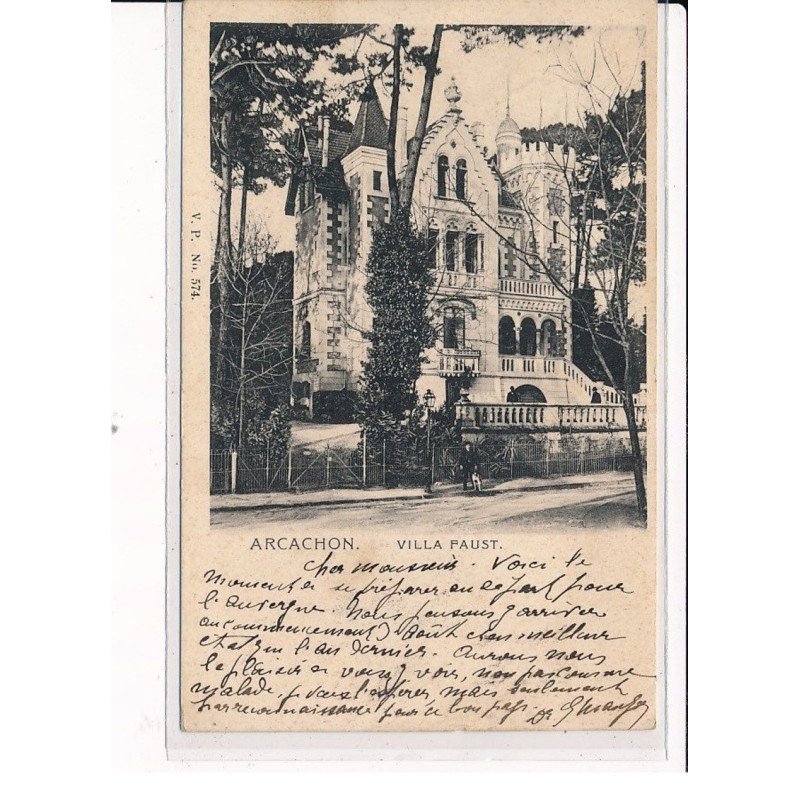 V. P. No. 574.
ARCACHON. VILLA FAUST.
Cher monsieur. Voici le
moment de se préparer au départ pour
l'auvergne. Nous pensons y arriver
au commencement d'Août en meilleur
état que l'an dernier. Aurons nous
le plaisir de vous y voir, non pas comme
malade, je vous l'espère mais seulement
par reconnaissance pour ce bon pays. Dr